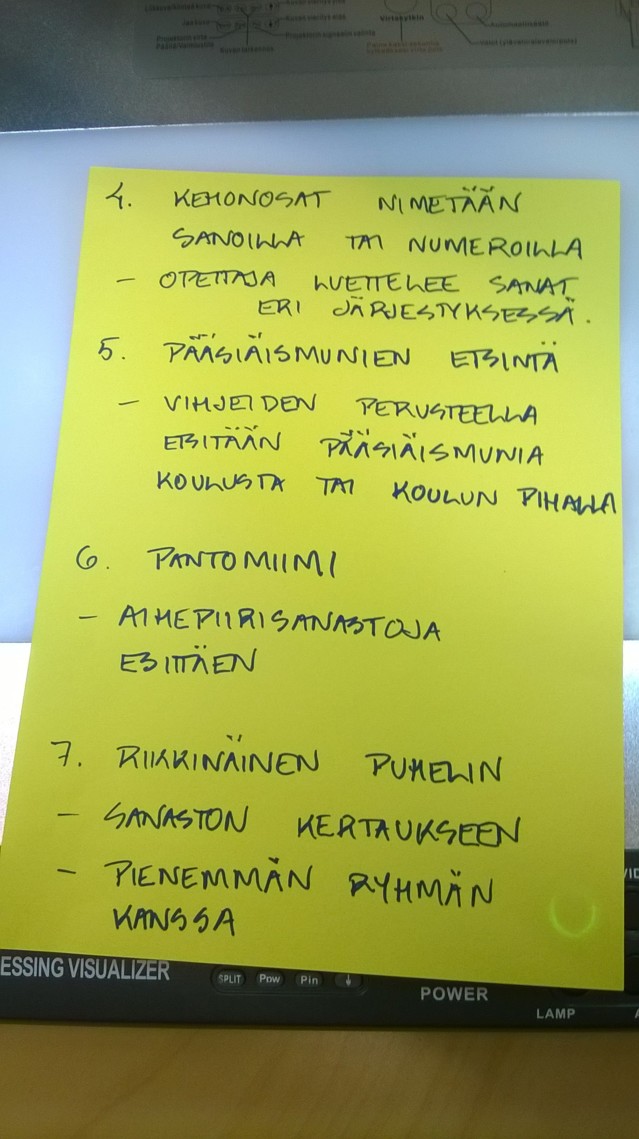 Virtakytkin
4. KEHONOSAT NIMETÄÄN
SANOILLA TAI NUMEROILLA
- OPETTAJA LUETTELEE SANAT
ERI JÄRJESTYKSESSÄ.
5. PÄÄSIÄISMUNIEN ETSINTÄ
- VIHJEIDEN PERUSTEELLA
ETSITÄÄN PÄÄSIÄISMUNIA
KOULUSTA TAI KOULUN PIHALLA
6. PANTOMIIMI
- AIHEPIIRISANASTOJA
ESITTÄEN
7. RIKKINÄINEN PUHELIN
- SANASTON KERTAUKSEEN
- PIENEMMÄN RYHMÄN
KANSSA
ESSING VISUALIZER
SPLIT Pow Pin
POWER
LAMP